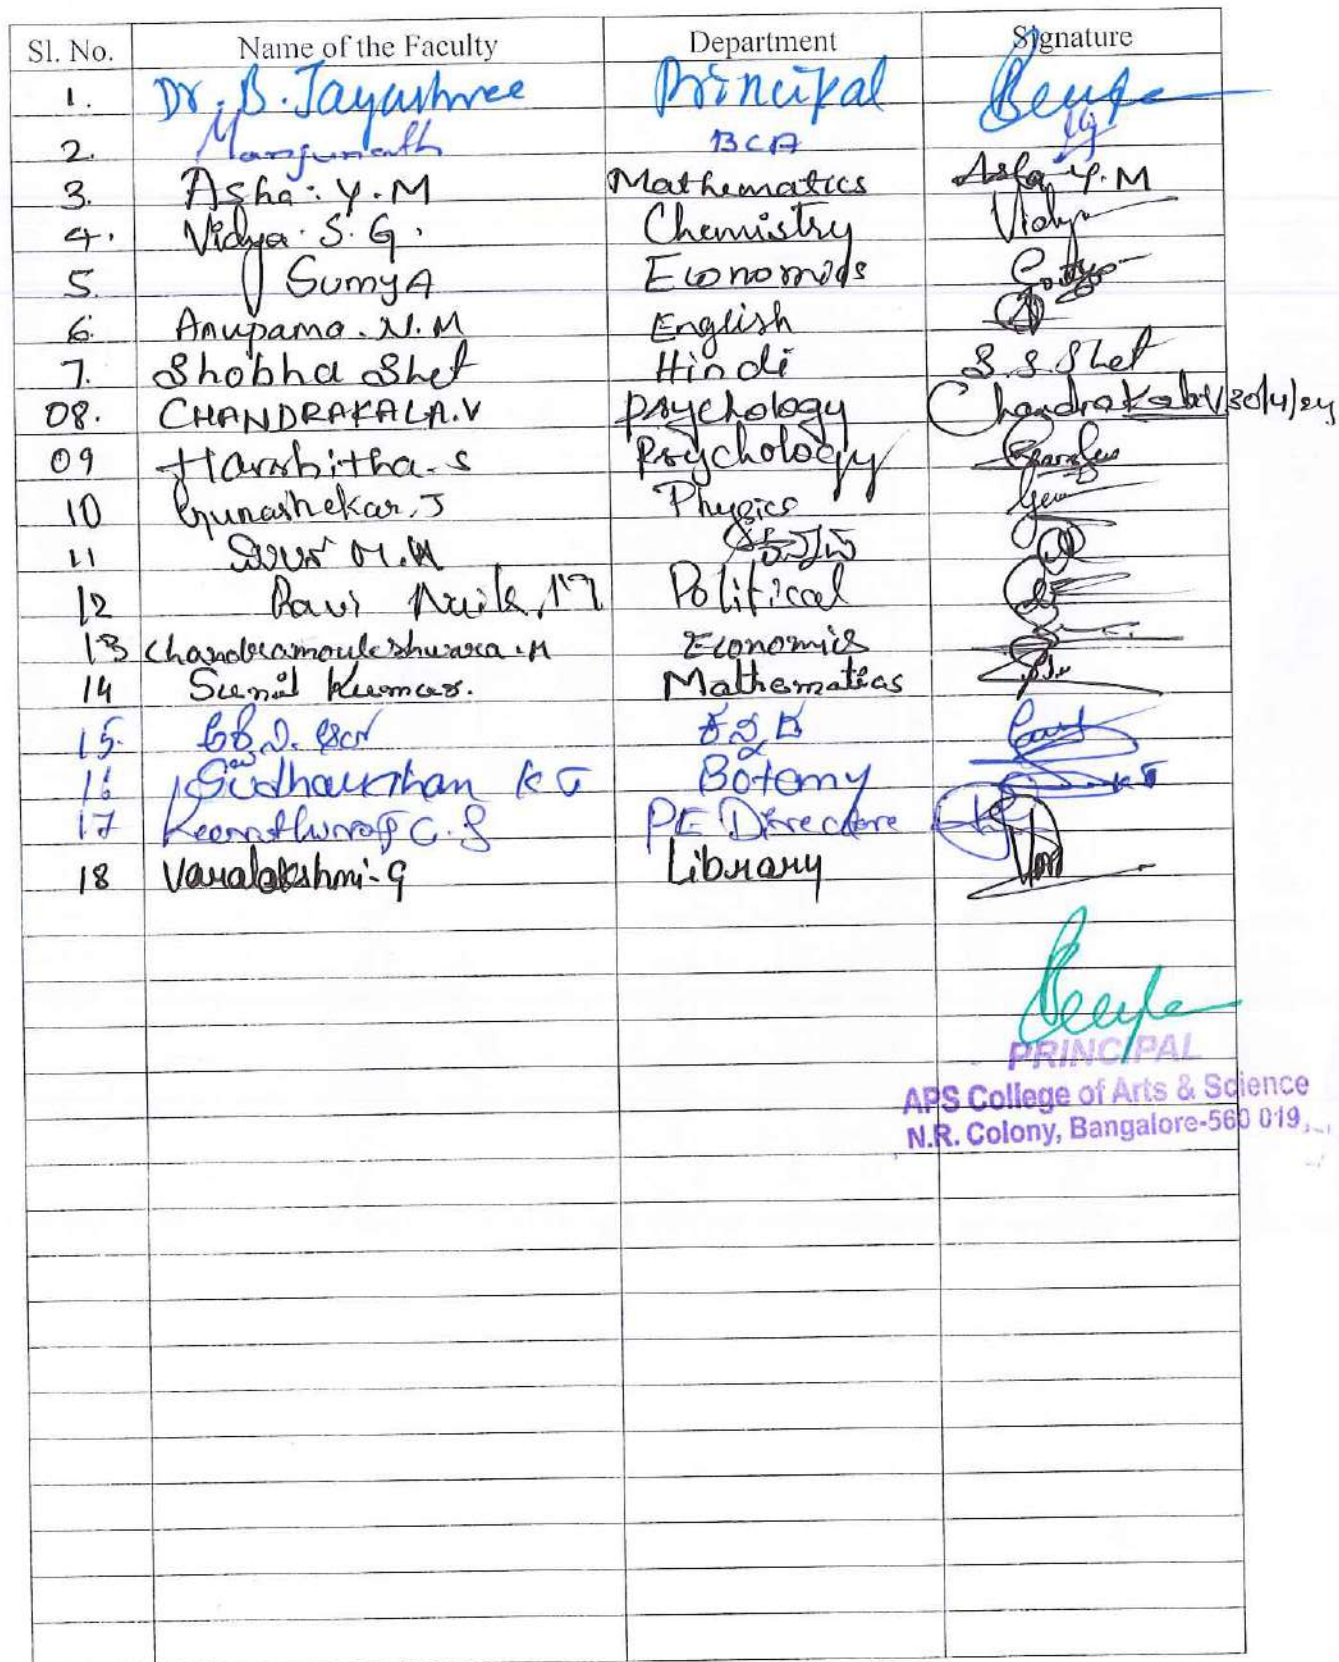 Sl. No. Name of the Faculty Department Signature
1. Dr. B. Jayashree Principal
2. Manjunath BCA
3. Asha. Y. M Mathematics Asha Y. M
4. Vidya. S. G. Chemistry Vidya
5. SumyA Economics
6. Anupama. N. M English
7. Shobha Shet Hindi S. S. Shet
08. CHANDRAKALA.V Psychology Chandrakala V 30/4/24
09 Harshitha. S Psychology
10 Gunashekar. J Physics
11
12 Ravi Naik. Political
13 Chandramouleshwara. M Economics
14 Sunil Kumar. Mathematics
15. ಕನ್ನಡ
16 K T Botany
17 C. S PE Directore
18 Varalakshmi-G Library
PRINCIPAL
APS College of Arts & Science
N.R. Colony, Bangalore-560 019.